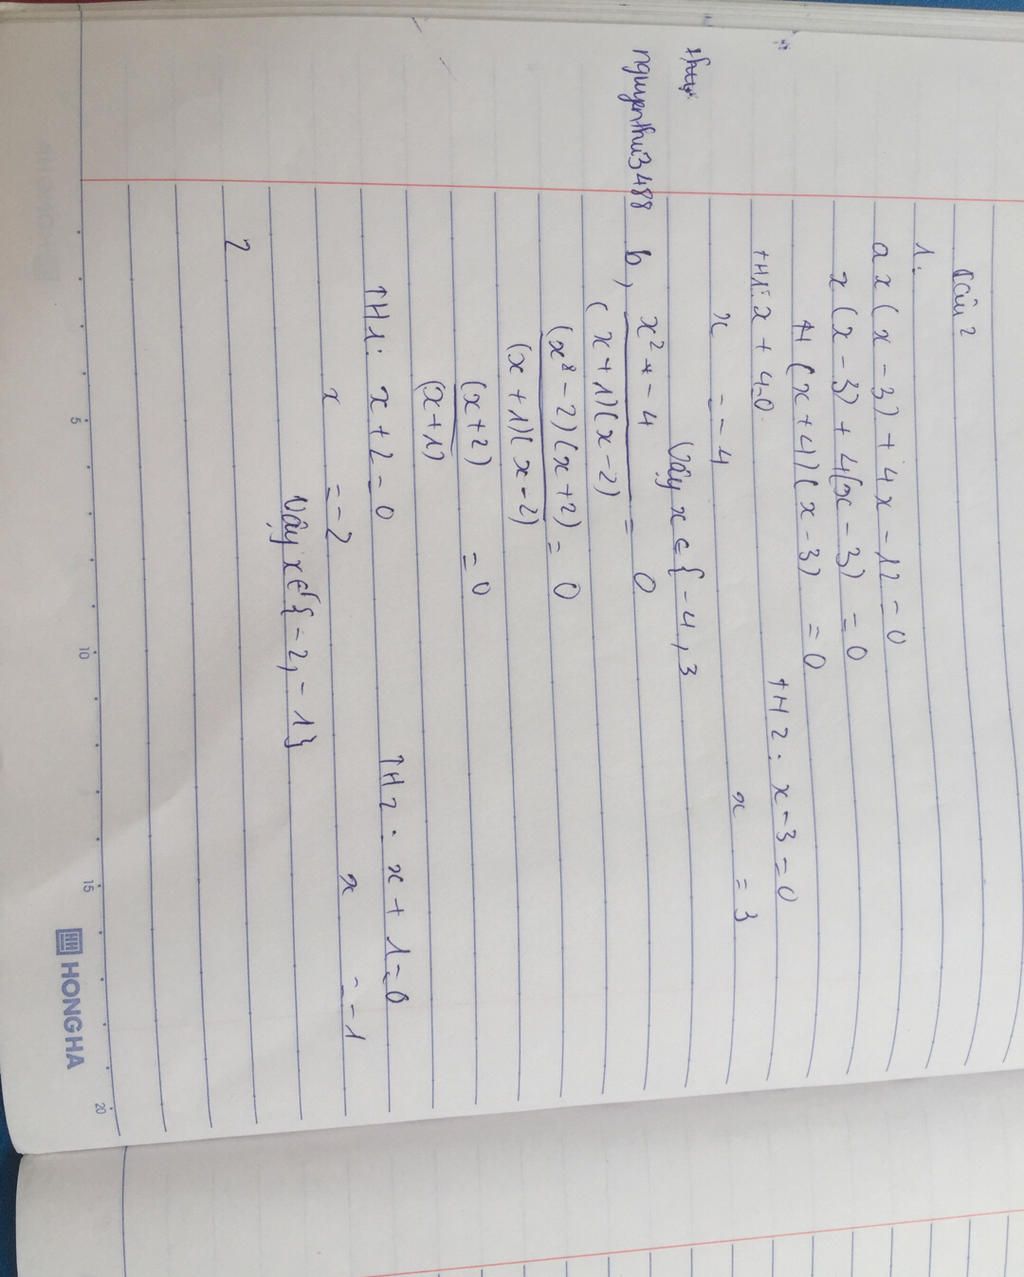 Câu 2
1.
a x(x-3)+4x-12=0
x(x-3)+4(x-3)=0
(x+4)(x-3)=0
TH1: x+4=0 TH2: x-3=0
x=-4 x=3
Vậy x ∈ {-4, 3
nguyenthu3488
b, x² - 4
(x+1)(x-2) = 0
(x-2)(x+2) = 0
(x+1)(x-2)
(x+2) = 0
(x+1)
TH1: x+2=0 TH2: x+1=0
x=-2 x=-1
Vậy x ∈ {-2, -1}
2
5 10 15 20
HH HONGHA